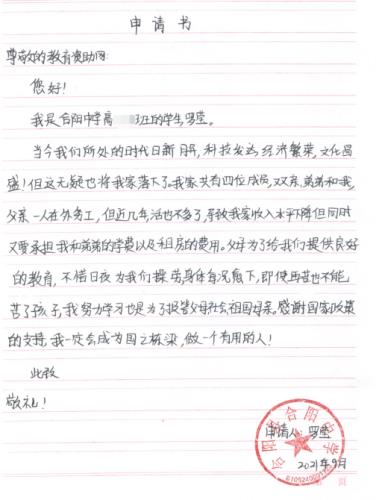 申请书
尊敬的教育资助网:
您好!
我是合阳中学高 班的学生罗莹。
当今我们所处的时代日新月异,科技发达经济繁荣,文化昌
盛!但这无疑也将我家落下了。我家共有四位成员,双亲,弟弟和我,
父亲一人在外务工,但近几年,活也不多了,导致我家收入水平下降但同时
又要承担我和弟弟的学费以及租房的费用。父母为了给我们提供良好
的教育,不惜日夜为我们操劳,身体每况愈下,即使再苦也不能
苦了孩子,我努力学习也是为了报答父母社会祖国母亲。感谢国家政策
的支持,我一定会成为国之栋梁,做一个有用的人!
此致
敬礼!
申请人:罗莹
2021年9月
合阳中学
页